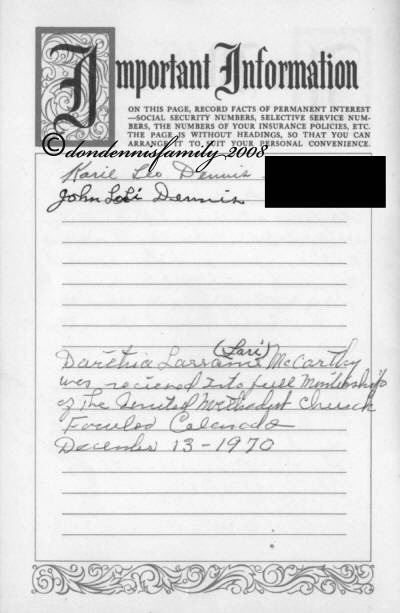 Important Information
ON THIS PAGE, RECORD FACTS OF PERMANENT INTEREST
—SOCIAL SECURITY NUMBERS, SELECTIVE SERVICE NUM-
BERS, THE NUMBERS OF YOUR INSURANCE POLICIES, ETC.
THE PAGE IS WITHOUT HEADINGS, SO THAT YOU CAN
ARRANGE IT TO SUIT YOUR PERSONAL CONVENIENCE.
©dondennisfamily 2008
Karie Leo Dennis
John Dennis
(Lori)
McCarthy
was recieved into full Membership
of The United Methodist Church
Colorado
December 13-1970